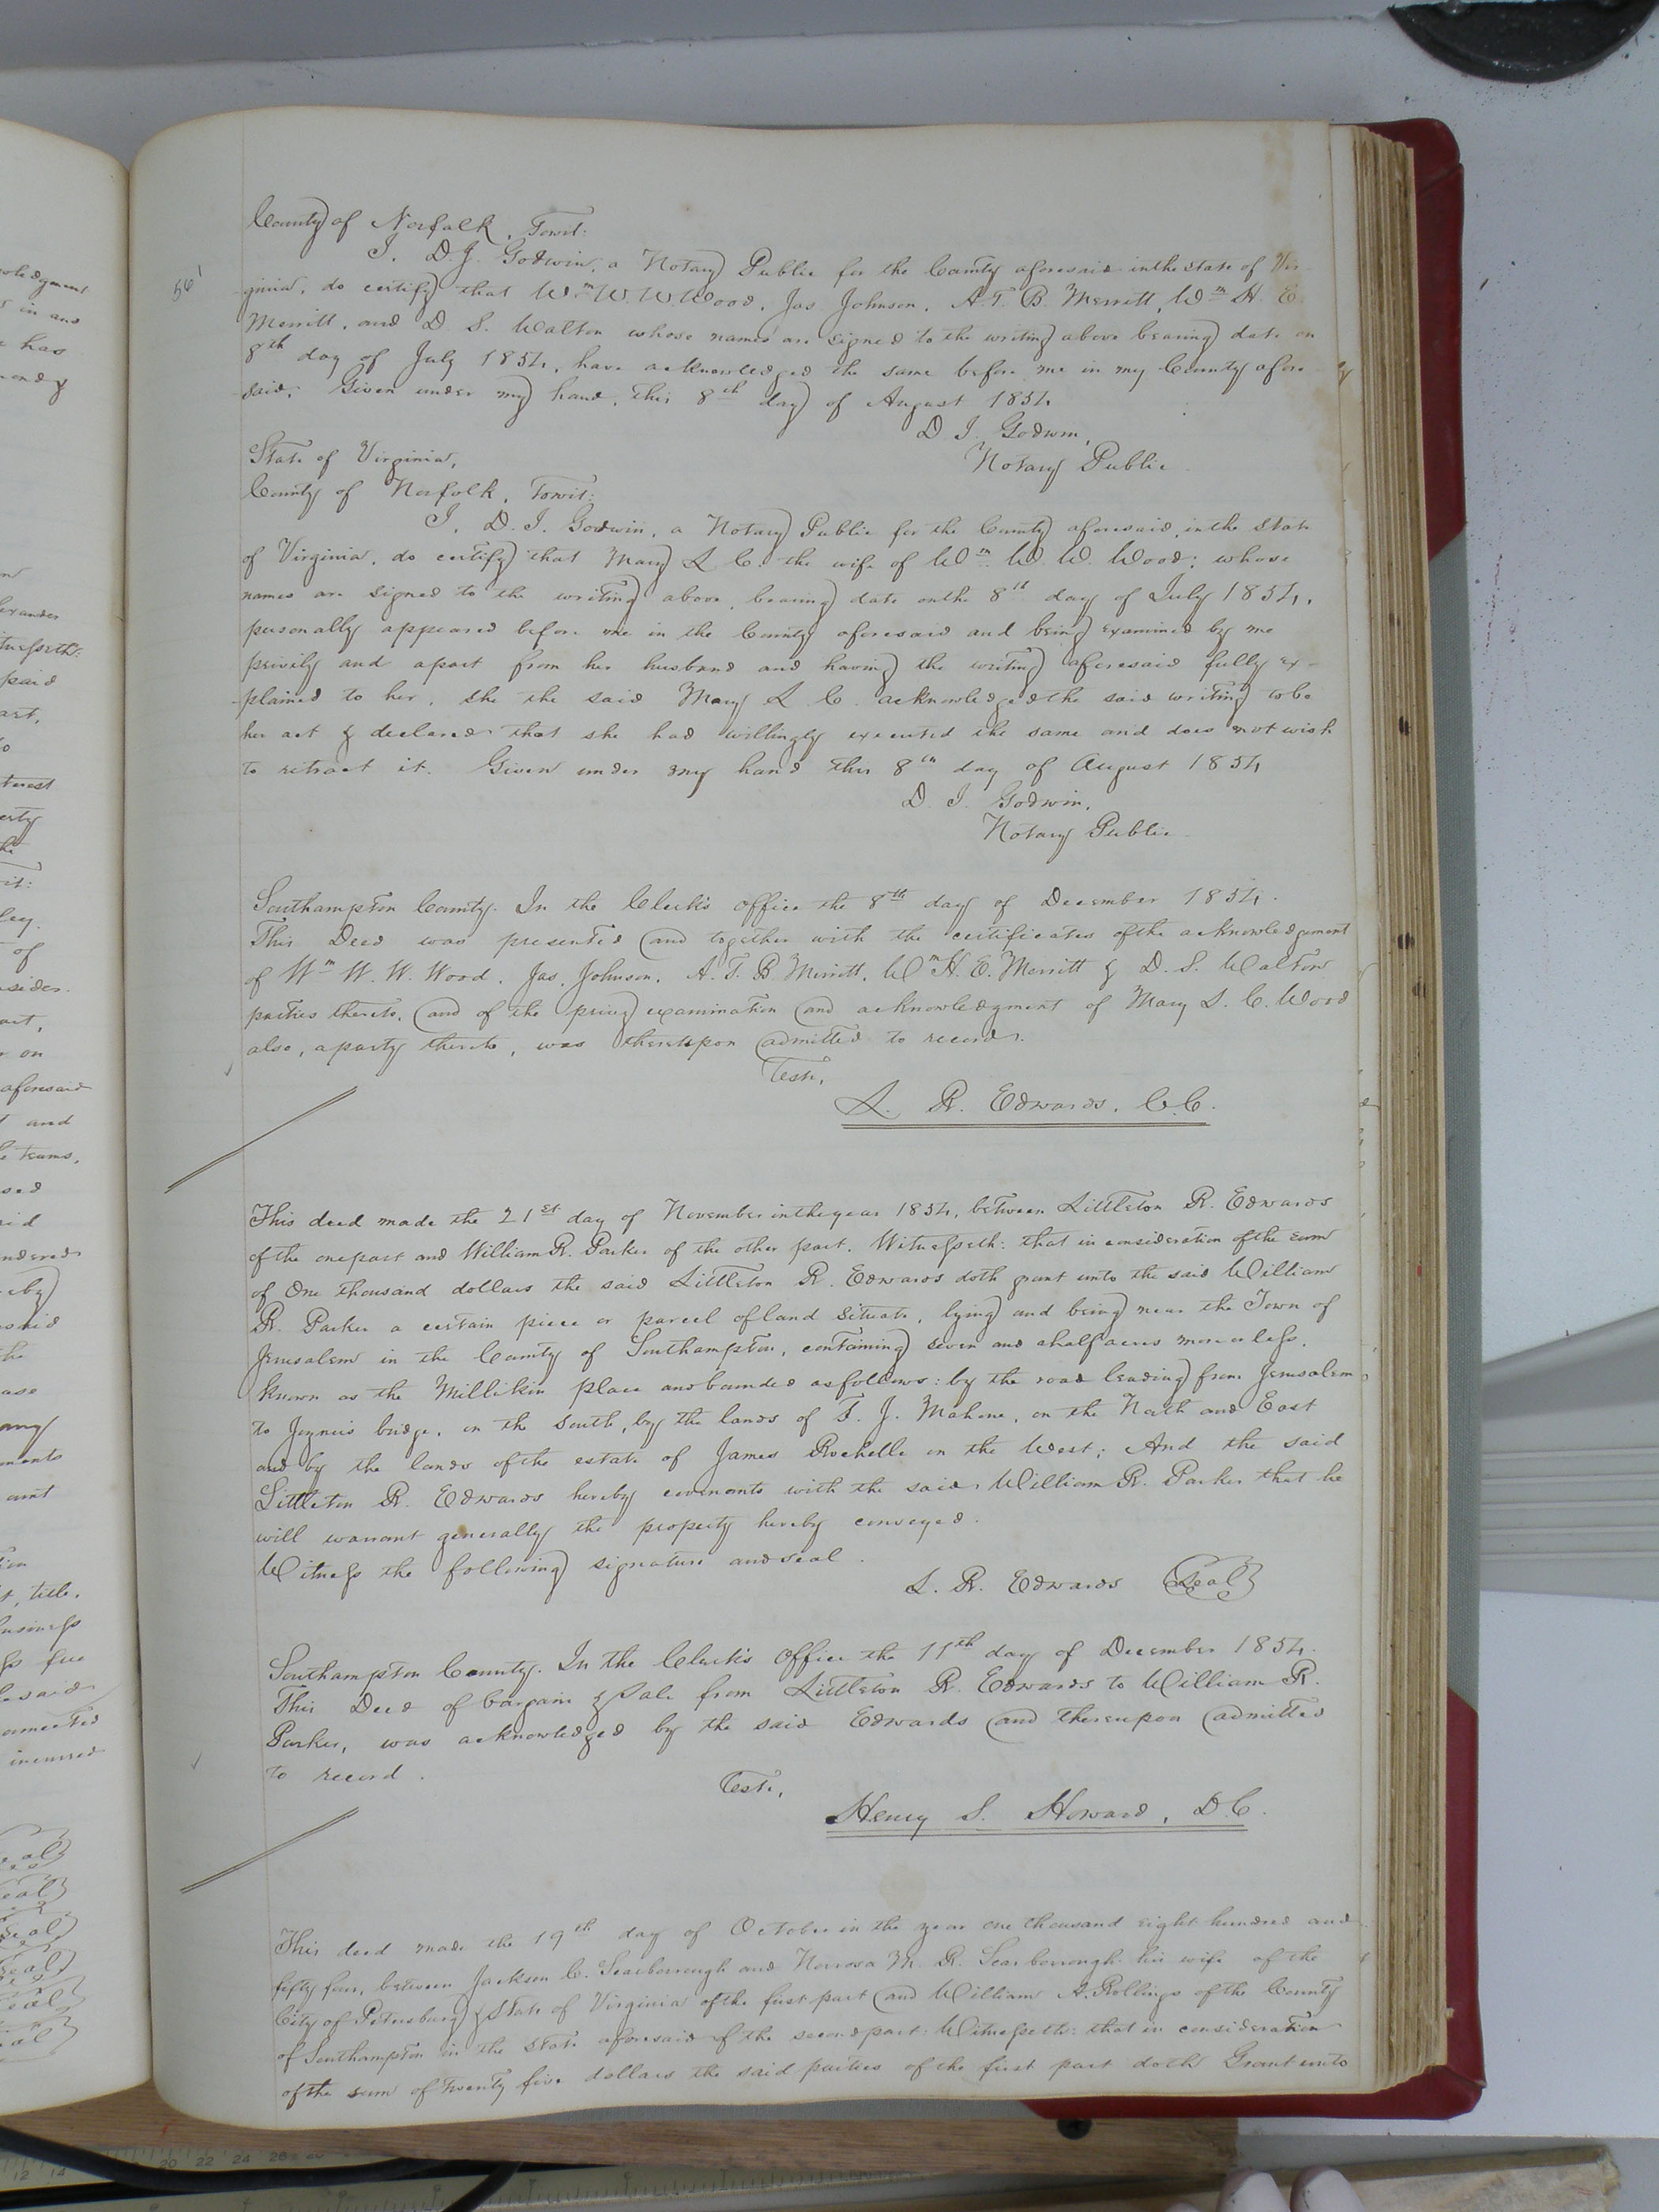 56
County of Norfolk, Towit:
I, D. J. Godwin, a Notary Public for the County aforesaid in the State of Vir-
ginia, do certify that Wm W. W. Wood, Jas Johnson, A. T. B. Merritt, Wm H. E.
Merritt, and D. S. Walton whose names are signed to the writing above bearing date on
8th day of July 1854, have acknowledged the same before me in my County afore
said. Given under my hand, this 8th day of August 1854
D. J. Godwin,
Notary Public
State of Virginia,
County of Norfolk, Towit:
I, D. J. Godwin, a Notary Public for the County aforesaid, in the State
of Virginia, do certify that Mary L C. the wife of Wm W. W. Wood; whose
names are signed to the writing above, bearing date on the 8th day of July 1854,
personally appeared before me in the County aforesaid and being examined by me
privily and apart from her husband and having the writing aforesaid fully ex-
plained to her, she the said Mary L C. acknowledged the said writing to be
her act & declared that she had willingly executed the same and does not wish
to retract it. Given under my hand this 8th day of August 1854
D. J. Godwin,
Notary Public
Southampton County. In the Clerk's office the 8th day of December 1854.
This Deed was presented and together with the certificates of the acknowledgement
of Wm W. W. Wood, Jas. Johnson, A. T. B Merritt, Wm H. E. Merritt & D. S. Walton
parties thereto, and of the privy examination and acknowledgment of Mary L. C. Wood
also, a party thereto, was thereupon admitted to record.
Teste,
L. R. Edwards, C.C.
This deed made the 21st day of November in the year 1854, between Littleton R. Edwards
of the one part and William R. Parker of the other part. Witnesseth: that in consideration of the sum
of One thousand dollars the said Littleton R. Edwards doth grant unto the said William
R. Parker a certain piece or parcel of land situate, lying and being near the Town of
Jerusalem in the County of Southampton, containing seven and a half acres more or less,
known as the Millikin place and bounded as follows: by the road leading from Jerusalem
to Joyner's bridge, on the South, by the lands of F. J. Mahone, on the North and East
and by the lands of the estate of James Rochelle on the West; And the said
Littleton R. Edwards hereby covenants with the said William R. Parker that he
will warrant generally the property hereby conveyed.
Witness the following signature and seal.
L. R. Edwards Seal
Southampton County. In the Clerk's Office the 11th day of December 1854.
This Deed of bargain & sale from Littleton R. Edwards to William R.
Parker, was acknowledged by the said Edwards and thereupon admitted
to record.
Teste,
Henry S. Howard, D.C.
This deed made the 19th day of October in the year one thousand eight hundred and
fifty four, between Jackson C. Scarborough and M. R. Scarborough his wife of the
City of Petersburg & State of Virginia of the first part and William A. Rollings of the County
of Southampton in the State aforesaid of the second part: Witnesseth: that in consideration
of the sum of twenty five dollars the said parties of the first part doth Grant unto